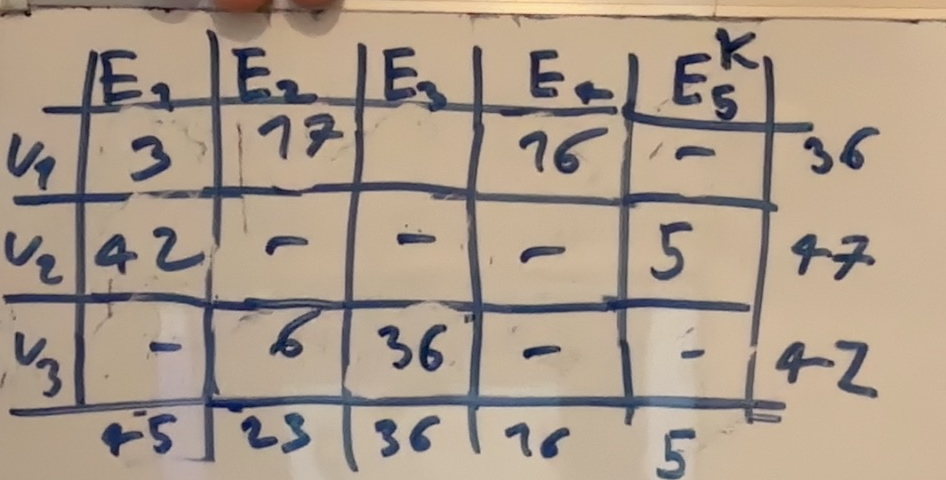 E1 E2 E3 E4 E5^K
V1 3 17 16 - 36
V2 42 - - - 5 47
V3 - 6 36 - - 42
45 23 36 16 5